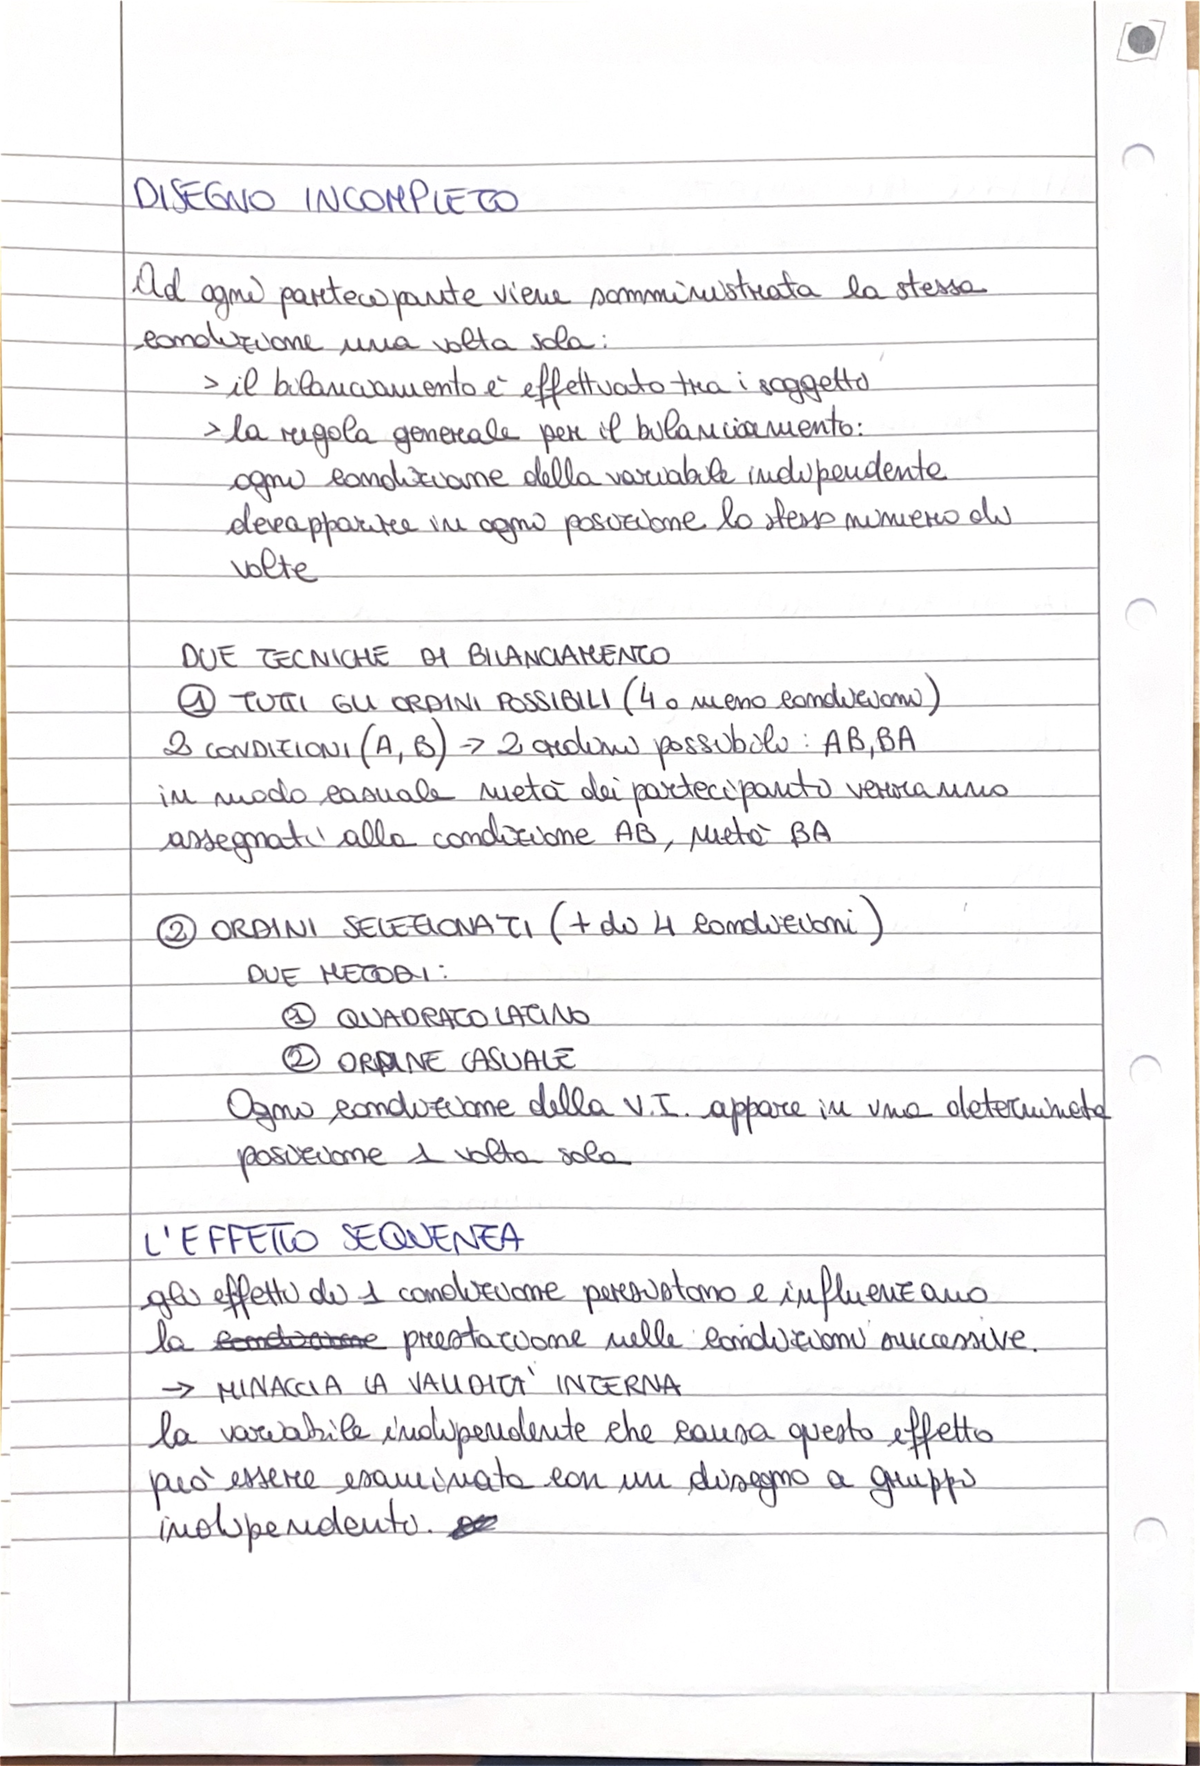 DISEGNO INCOMPLETO
Ad ogni partecipante viene somministrata la stessa
condizione una volta sola:
> il bilanciamento è effettuato tra i soggetto
> la regola generale per il bilanciamento:
ogni condizione della variabile indipendente
deve apparire in ogni posizione lo stesso numero di
volte
DUE TECNICHE DI BILANCIAMENTO
① TUTTI GLI ORDINI POSSIBILI (4 o meno condizioni)
2 CONDIZIONI (A, B) → 2 ordini possibili: AB, BA
in modo casuale metà dei partecipanti verranno
assegnati alla condizione AB, metà BA
② ORDINI SELEZIONATI (+ di 4 condizioni)
DUE METODI:
① QUADRATO LATINO
② ORDINE CASUALE
Ogni condizione della V.I. appare in una determinata
posizione 1 volta sola
L'EFFETTO SEQUENZA
gli effetti di 1 condizione persistono e influenzano
la condizione prestazione nelle condizioni successive.
→ MINACCIA LA VALIDITÀ INTERNA
la variabile indipendente che causa questo effetto
può essere esaminata con un disegno a gruppi
indipendenti.